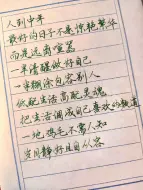 人到中年
最好的日子不是惊艳繁华
而是远离喧嚣
一半清醒做好自己
一半糊涂包容别人
低配生活高配灵魂
把生活调成自己喜欢的频道
一地鸡毛不为人知
岁月静好且自从容